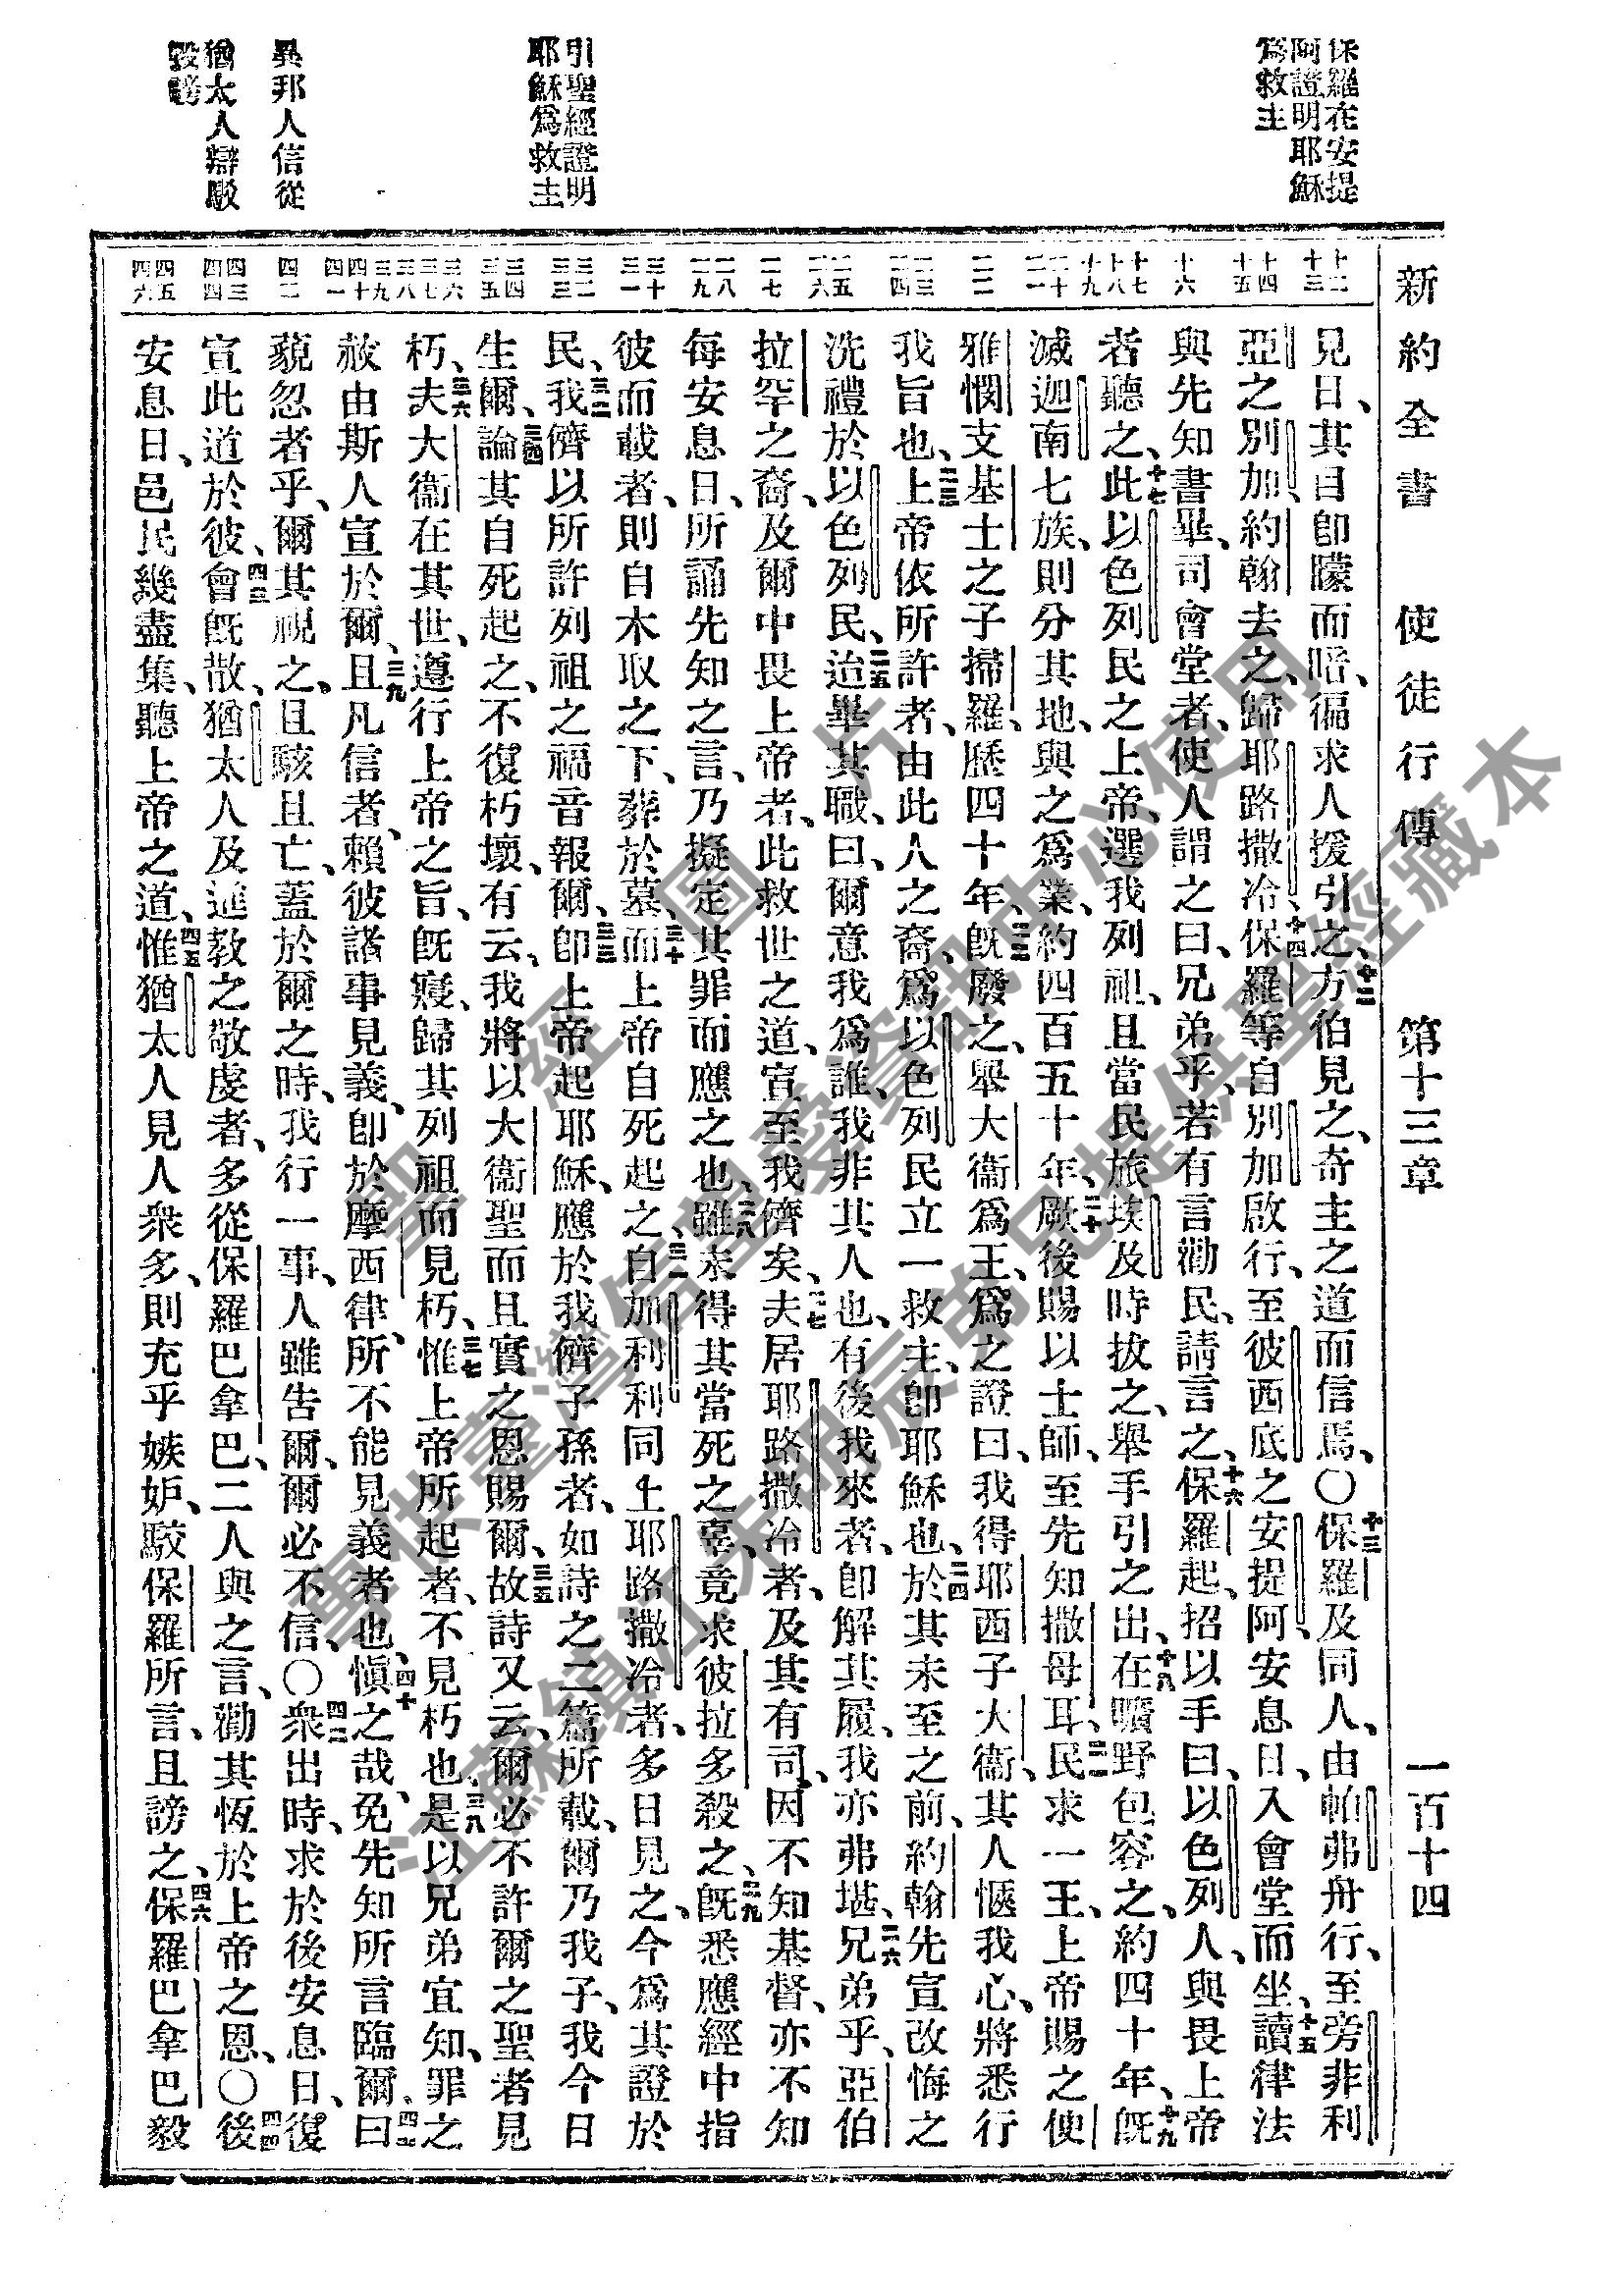 新約全書　使徒行傳　第十三章　一百十四
保羅在安提
阿證明耶穌
爲救主
引聖經證明
耶穌爲救主
異邦人信從
猶太人辯駁
毀謗
見日、其目卽矇而暗、徧求人援引之、十二方伯見之、奇主之道而信焉、〇十三保羅及同人、由帕弗舟行、至旁非利
亞之別加、約翰去之、歸耶路撒冷、十四保羅等自別加啟行、至彼西底之安提阿、安息日、入會堂而坐、十五讀律法
與先知書畢、司會堂者、使人謂之曰、兄弟乎、若有言勸民、請言之、十六保羅起、招以手曰、以色列人、與畏上帝
者聽之、十七此以色列民之上帝、選我列祖、且當民旅埃及時拔之、舉手引之出、十八在曠野包容之、約四十年、十九旣
滅迦南七族、則分其地、與之爲業、約四百五十年、二十厥後賜以士師、至先知撒母耳、二一民求一王、上帝賜之便
雅憫支基士之子掃羅、歷四十年、二二旣廢之、舉大衞爲王、爲之證曰、我得耶西子大衞、其人愜我心、將悉行
我旨也、二三上帝依所許者、由此人之裔、爲以色列民立一救主、卽耶穌也、二四於其未至之前、約翰先宣改悔之
洗禮於以色列民、二五迨畢其職、曰、爾意我爲誰、我非其人也、有後我來者、卽解其履、我亦弗堪、二六兄弟乎、亞伯
拉罕之裔、及爾中畏上帝者、此救世之道、宣至我儕矣、二七夫居耶路撒冷者、及其有司、因不知基督、亦不知
每安息日、所誦先知之言、乃擬定其罪而應之也、二八雖未得其當死之辜、竟求彼拉多殺之、二九旣悉應經中指
彼而載者、則自木取之下、葬於墓、三十而上帝自死起之、三一自加利利同上耶路撒冷者、多日見之、今爲其證於
民、三二我儕以所許列祖之福音報爾、三三卽上帝起耶穌、應於我儕子孫者、如詩之二篇所載、爾乃我子、我今日
生爾、三四論其自死起之、不復朽壞、有云、我將以大衞聖而且實之恩賜爾、三五故詩又云、爾必不許爾之聖者見
朽、三六夫大衞在其世、遵行上帝之旨、旣寢、歸其列祖而見朽、三七惟上帝所起者、不見朽也、三八是以兄弟宜知、罪之
赦由斯人宣於爾、三九且凡信者、賴彼諸事見義、卽於摩西律、所不能見義者也、四十愼之哉、免先知所言臨爾、四一曰
藐忽者乎、爾其視之、且駭且亡、蓋於爾之時、我行一事、人雖吿爾、爾必不信、〇四二衆出時、求於後安息日、復
宣此道於彼、四三會旣散、猶太人及進敎之敬虔者、多從保羅巴拿巴、二人與之言、勸其恆於上帝之恩、〇四四後
安息日、邑民幾盡集、聽上帝之道、四五惟猶太人見人衆多、則充乎嫉妒、駁保羅所言、且謗之、四六保羅巴拿巴毅
聖經圖片
專供臺灣信望愛資訊中心使用
江蘇鎮江朱明辰弟兄提供聖經藏本